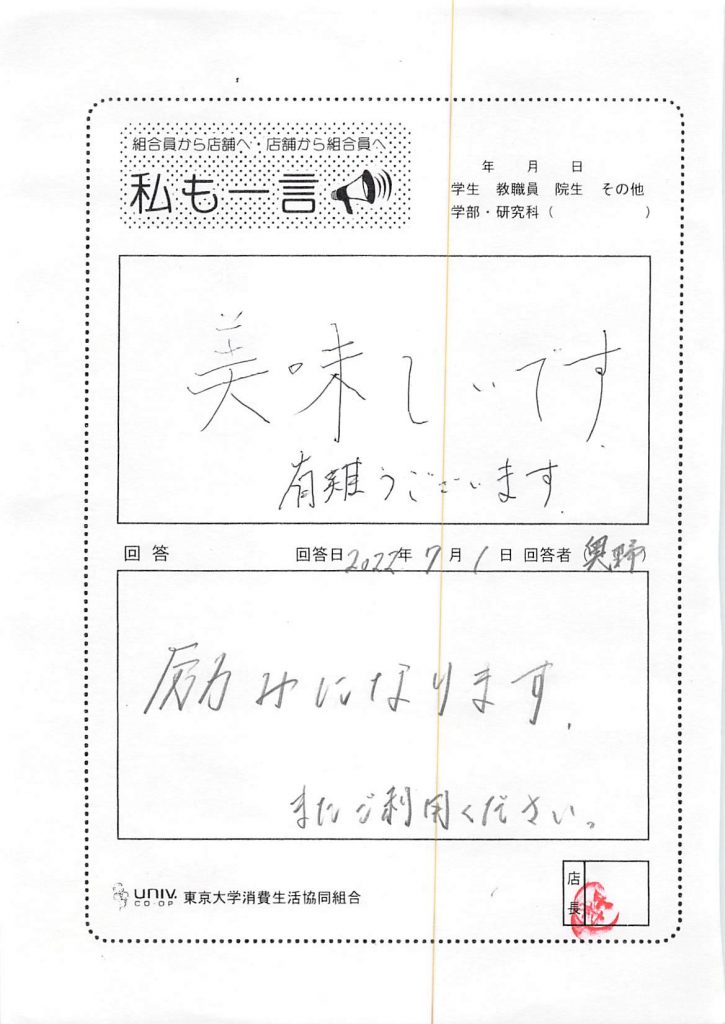 組合員から店舗へ・店舗から組合員へ
私も一言
年 月 日
学生 教職員 院生 その他
学部・研究科( )
美味しいです
有難うございます
回答 回答日 2022年 7月 1日 回答者 奥野
励みになります.
またご利用ください。
UNIV.
CO-OP
東京大学消費生活協同組合
店長